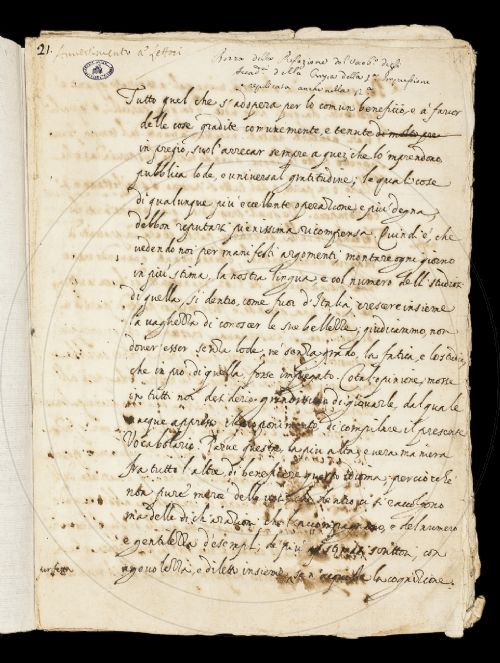 21. Avvertimento a' lettori
Bozza della Prefazione del Vocab.º degli
Accad.ci della Crusca della 1.ª Impressione
replicata anche nella 2.ª
Tutto quel che s'adopera per lo comun beneficio, e a favor
delle cose gradite comunemente, e tenute di molto pre
in pregio, suol'arrecar sempre a quei che lo 'mprendono
pubblica lode, e universal gratitudine; le quali cose
di qualunque più eccellente operazione, e più degna
debbon reputarsi pienissima ricompensa. Quind'è, che
vedendo noi per manifesti argomenti montare ogni giorno
in più stima, la nostra lingua, e col numero dell' studiosi
di quella, sì dentro, come fuor d'Italia, crescere insieme
la vaghezza di conoscer le sue bellezze; giudicammo, non
dover esser senza lode, nè senza grado, la fatica, e lo studio,
che in prò di quella fosse impiegato. Cotal' opinione, mosse
in tutti noi desiderio grandissimo di giovarle, dal quale
nacque appresso il proponimento di compilare il presente
Vocabolario. Parve questa la più alta, e vera maniera
fra tutte l'altre di beneficere questo idioma: perciocchè
non pure merce delle voci che dentro ci si raccolgono
ma delle dichiarazioni che l'accompagnano, e del numero
e gentilezza d'esempli, de' più stimati scrittori, con
agevolezza, e diletto insieme, la cognizione
perfetta